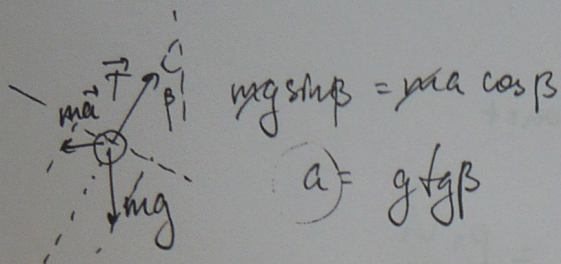 T⃗
β
ma⃗
mg
mg sinβ = ma cosβ
a = g tgβ